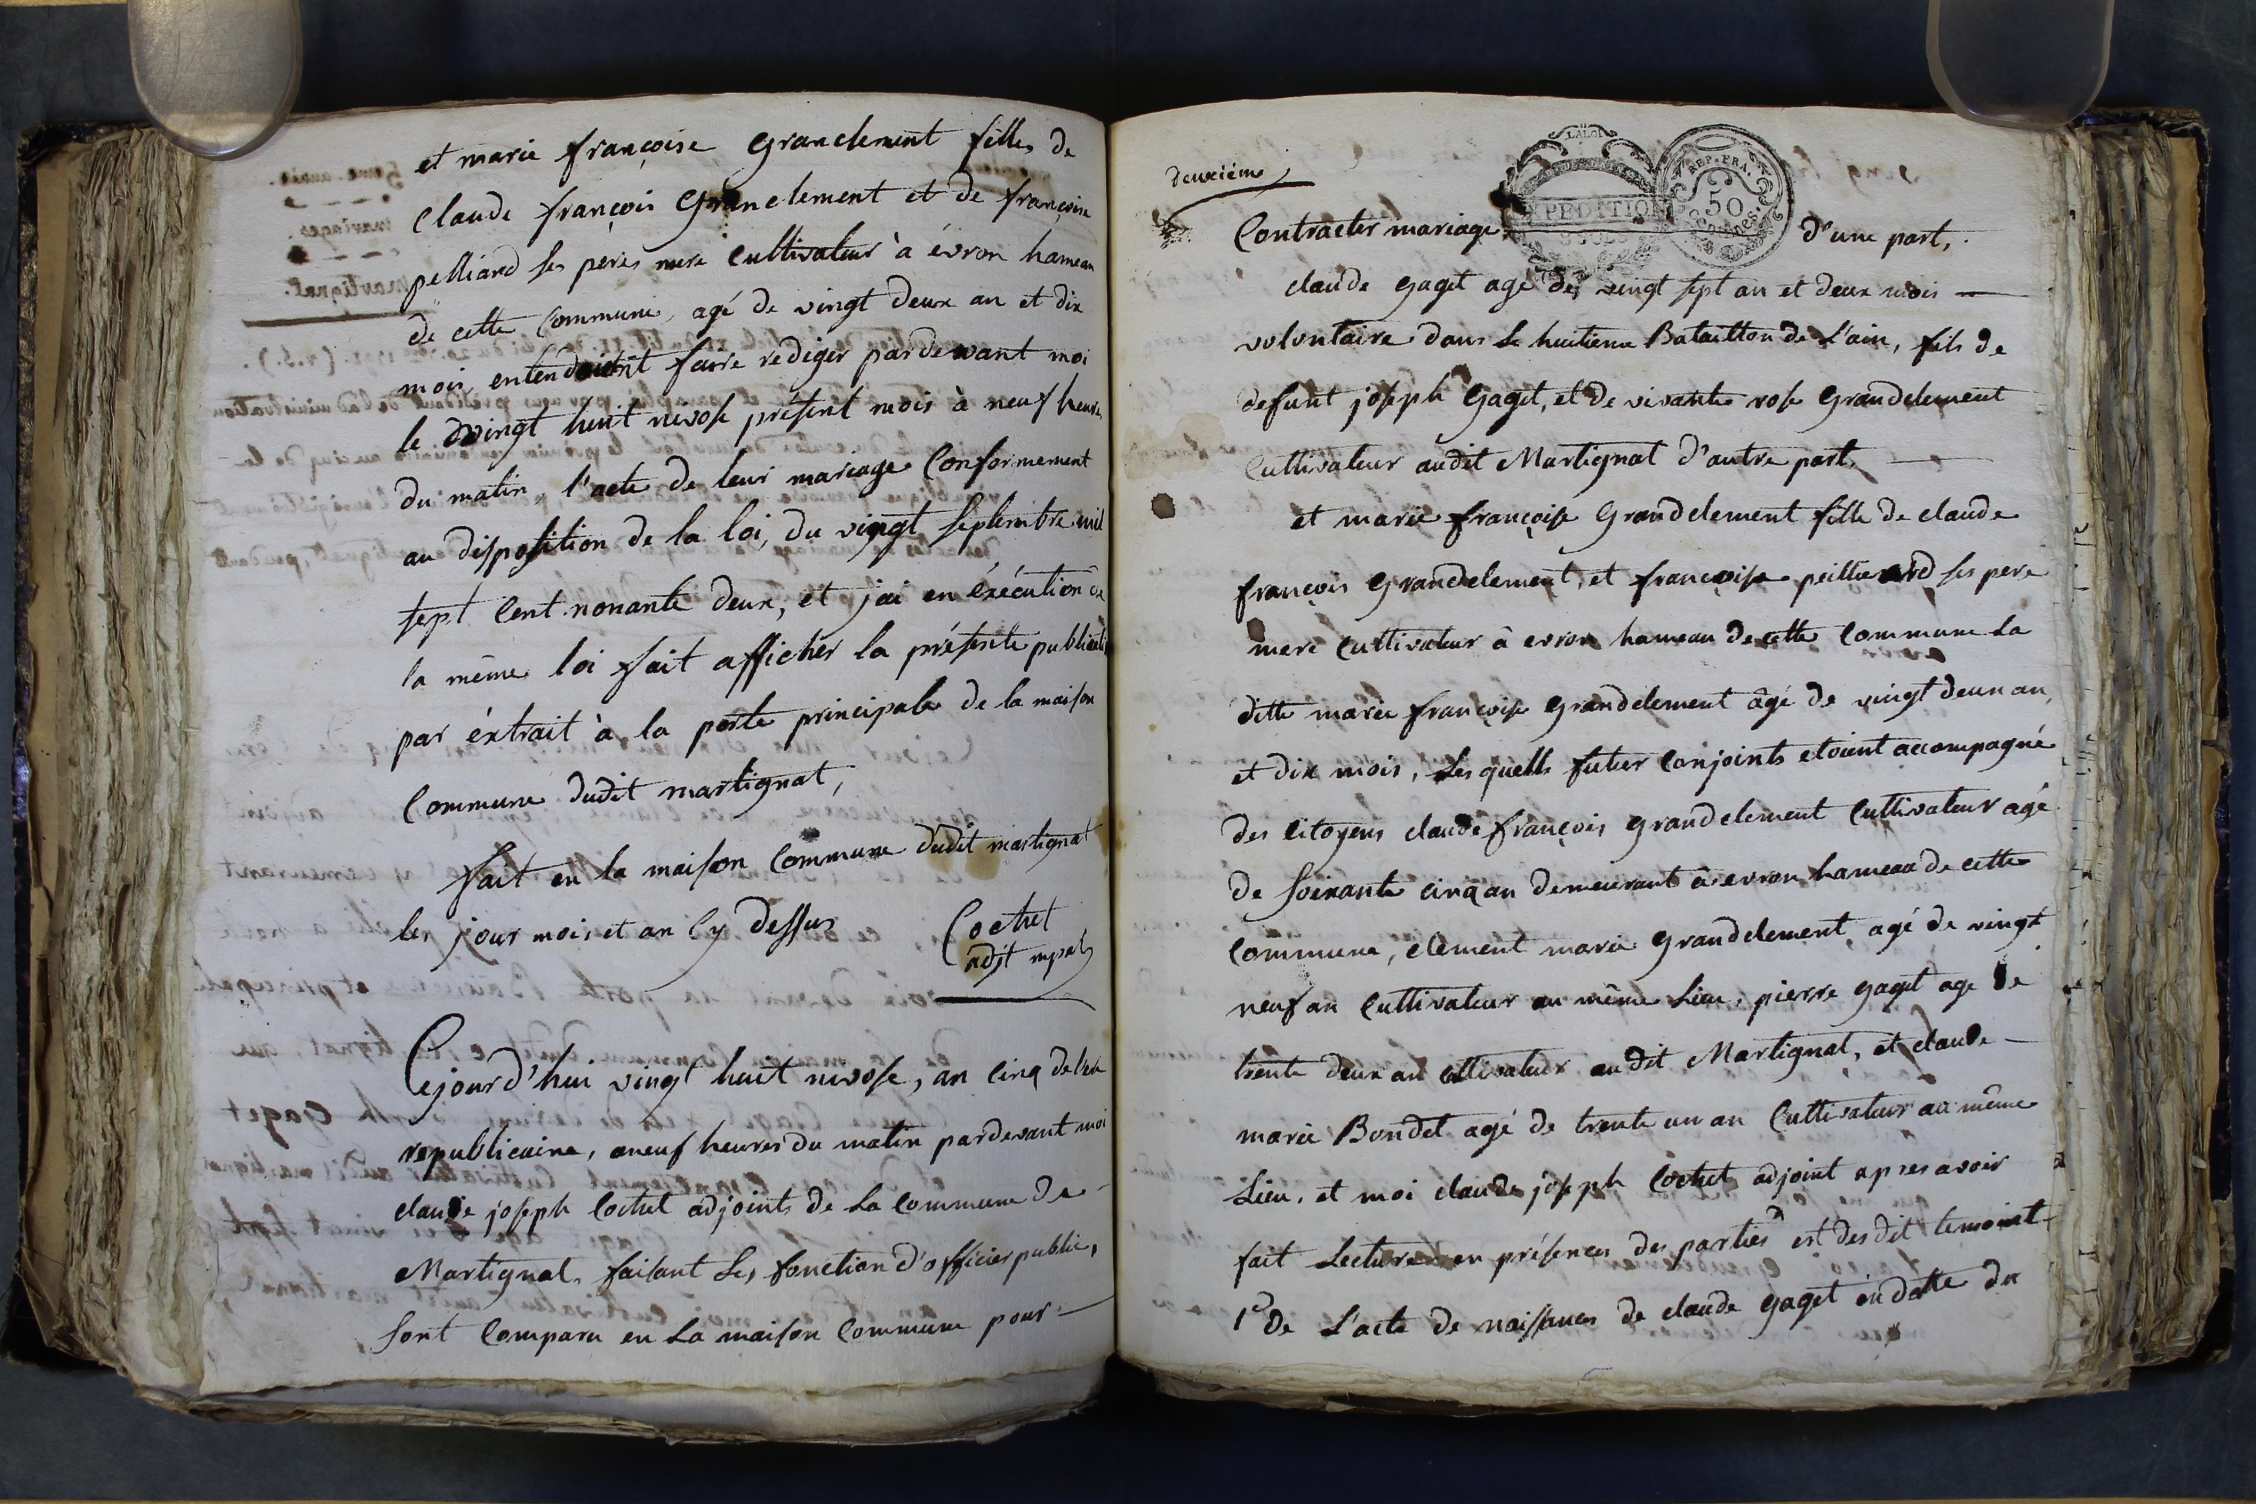 et marie françoise Granclement filles de
claude françois Granclement et de françoise
pelliard ses peres mere Cultivateur à évron hameau
de cette Commune, agé de vingt deux an et dix
mois entendoient faire rediger pardevant moi
le vingt huit nivose présent mois à neuf heures
du matin, l'acte de leur mariage Conformement
au disposition de la loi, du vingt septembre mil
sept Cent nonante deux, et jai en éxécution de
la même loi fait afficher la présente publicati
par éxtrait à la porte principale de la maison
Commune dudit martignat,
fait en la maison Commune dudit martignat
les jour mois et an Cy dessus
Cochet
adjt mpal
Cejourd'hui vingt huit nivose, an Cinq de l'ere
republicaine, aneuf heures du matin pardevant moi
claude joseph Cochet adjoints de La Commune de
Martignat, faisant Les fonction d'officier public,
sont Comparu en La maison Commune pour
deuxième
LA LOI
EXPÉDITION
REP. FRA.
50
Centimes.
Contracter mariage, d'une part,
claude gaget agé de vingt sept an et deux mois
volontaire dans Le huitieme Bataillon de L'ain, fils de
defunt joseph Gaget, et de vivante rose Grandclement
Cultivateur audit Martignat d'autre part,
et marie françoise Grandclement fille de claude
françois Grandclement, et françoise peillierard ses pere
mere Cultivateur à evron hameau de cette Commune La
ditte marie françoise Grandclement âgé de vingt deux an,
et dix mois, Les quells futur Conjoints etoient accompagné
des Citoyens claude françois grandclement Cultivateur agé
de soixante cinq an demeurant à evron hameau de cette
Commune, clement marie grandclement agé de vingt
neuf an Cultivateur au même Lieu, pierre gaget age de
trente deux an Cultivateur audit Martignat, et claude
marie Bondet agé de trente un an Cultivateur au même
Lieu, et moi claude joseph Cochet adjoint apres avoir
fait Lecture en présences des parties et des dit temoint
1º De L'acte de naissances de claude gaget en datte du